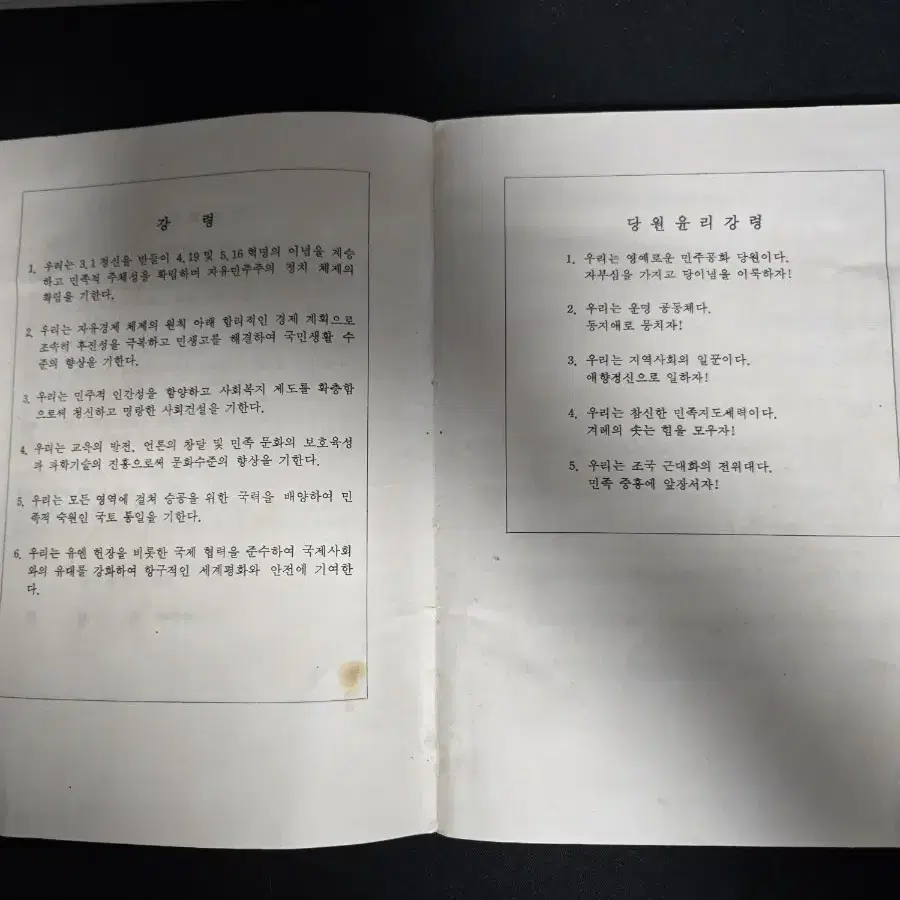 강 령
1. 우리는 3.1 정신을 받들어 4.19 및 5.16 혁명의 이념을 계승
하고 민족적 주체성을 확립하며 자유민주주의 정치 체제의
확립을 기한다.
2. 우리는 자유경제 체제의 원칙 아래 합리적인 경제 계획으로
조속히 후진성을 극복하고 민생고를 해결하여 국민생활 수
준의 향상을 기한다.
3. 우리는 민주적 인간성을 함양하고 사회복지 제도를 확충함
으로써 청신하고 명랑한 사회건설을 기한다.
4. 우리는 교육의 발전, 언론의 창달 및 민족 문화의 보호육성
과 과학기술의 진흥으로써 문화수준의 향상을 기한다.
5. 우리는 모든 영역에 걸쳐 승공을 위한 국력을 배양하여 민
족적 숙원인 국토 통일을 기한다.
6. 우리는 유엔 헌장을 비롯한 국제 협력을 준수하여 국제사회
와의 유대를 강화하여 항구적인 세계평화와 안전에 기여한
다.
당원윤리강령
1. 우리는 영예로운 민주공화 당원이다.
자부심을 가지고 당이념을 이룩하자!
2. 우리는 운명 공동체다.
동지애로 뭉치자!
3. 우리는 지역사회의 일꾼이다.
애향정신으로 일하자!
4. 우리는 참신한 민족지도세력이다.
겨레의 솟는 힘을 모우자!
5. 우리는 조국 근대화의 전위대다.
민족 중흥에 앞장서자!